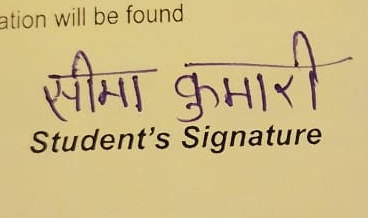 ation will be found
सीमा कुमारी
Student's Signature